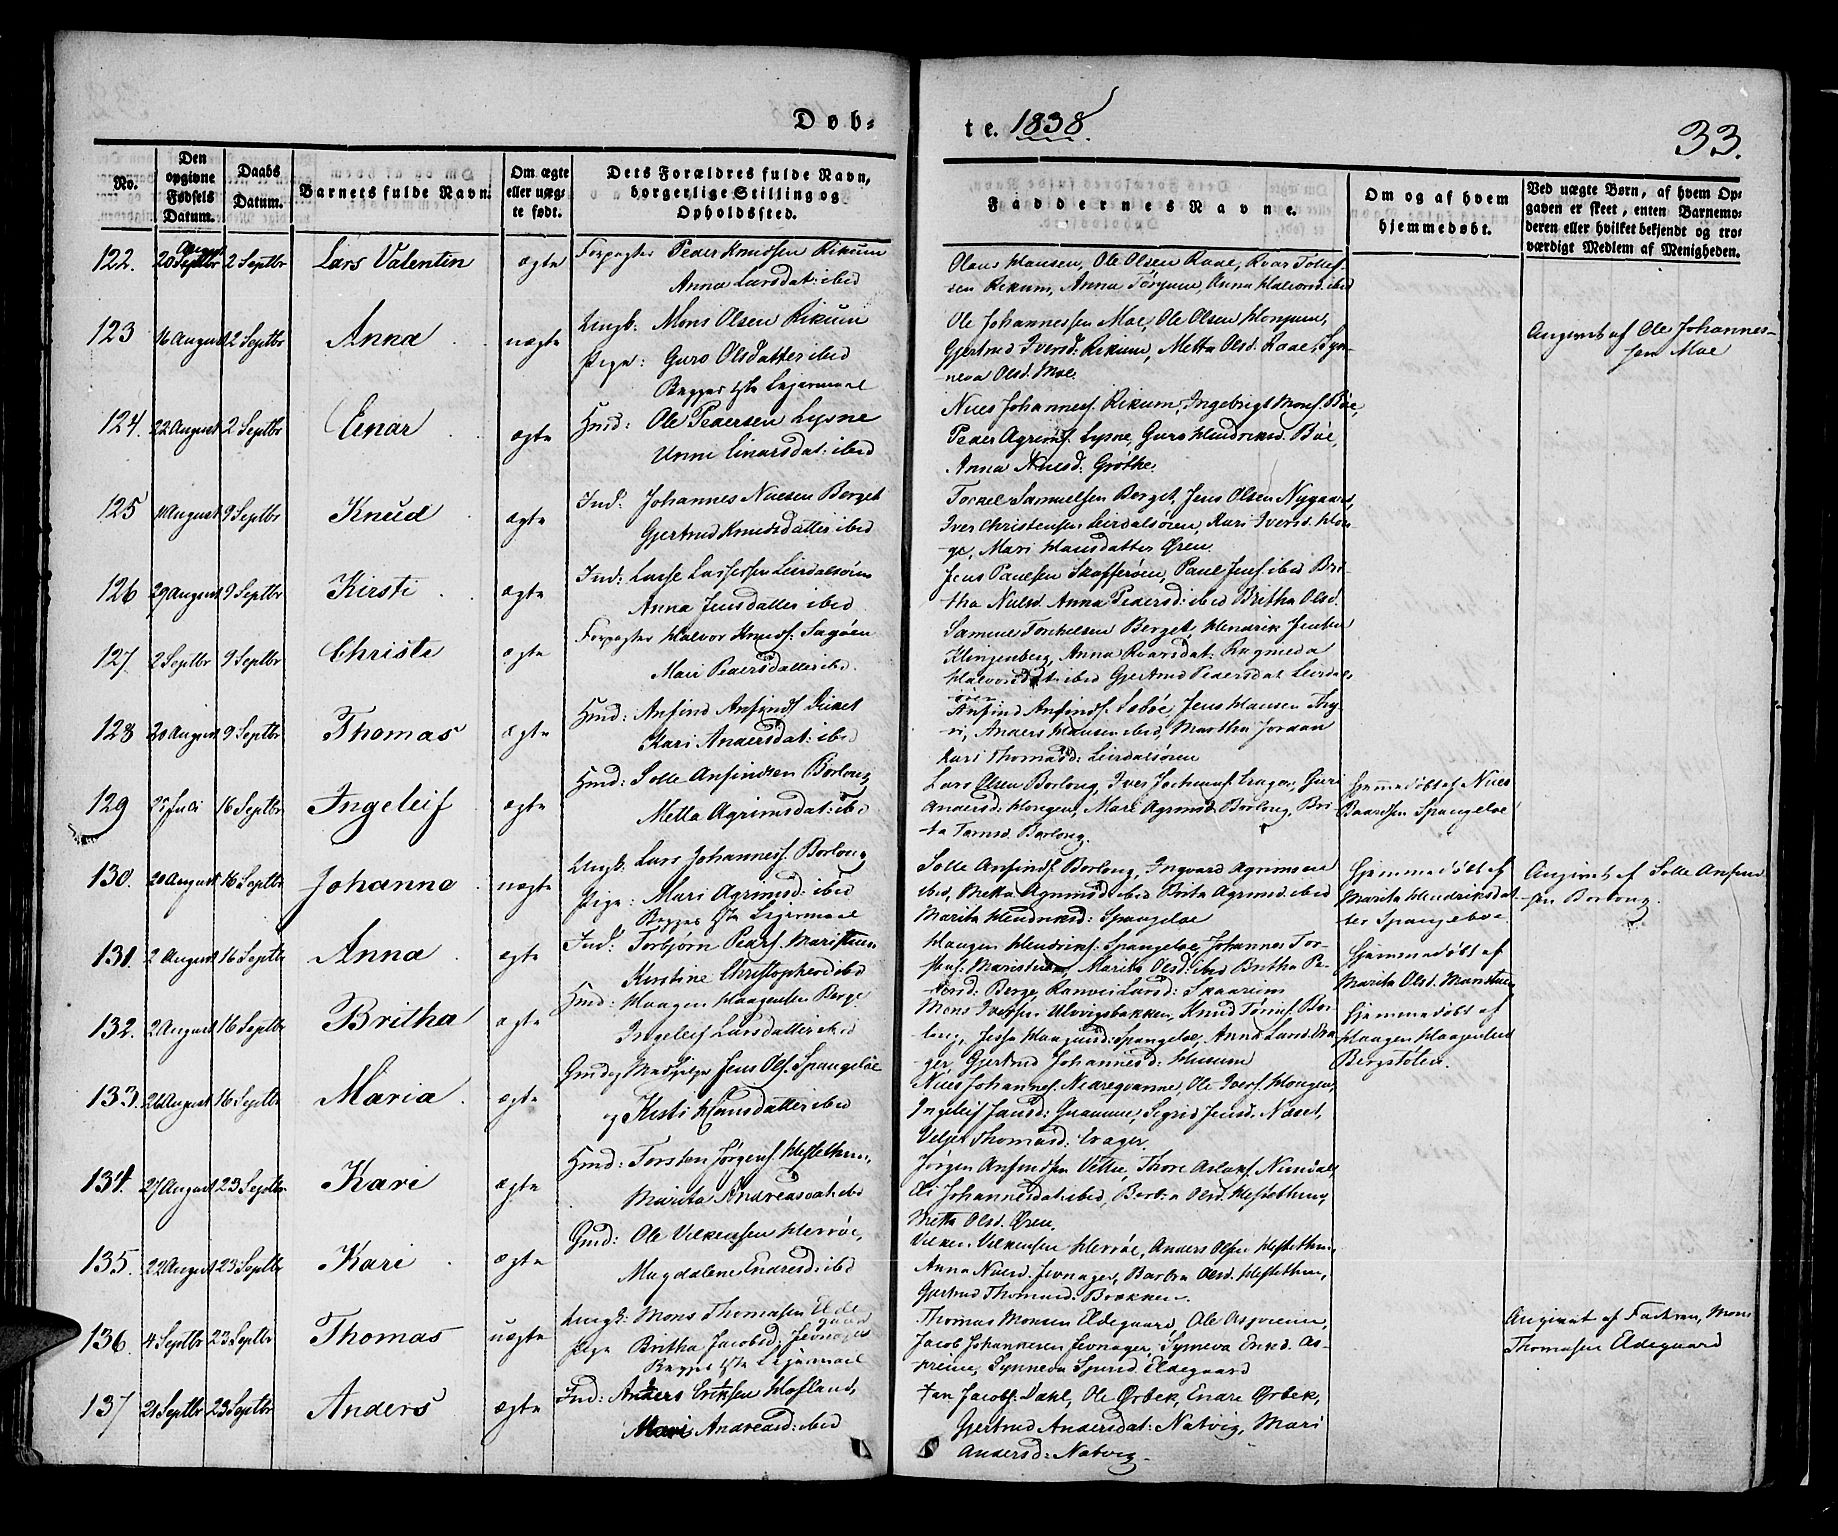 Døb-
te. 1838.
33.
No.
Den opgivne Fødsels Datum.
Daabs Datum.
Barnets fulde Navn.
Om ægte eller uæg- te født.
Dets Forældres fulde Navn, borgerlige Stilling og Opholdssted.
Faddernes Navne.
Om og af hvem hjemmedøbt.
Ved uægte Børn, af hvem Op- gaven er skeet, enten Barnemo- deren eller hvilket bekjendt og tro- værdigt Medlem af Menigheden.
122. 20 August 2 Septbr Lars Valentin ægte Forpagter Peder Knudsen Rikum
Anna Larsdat: ibid
Olaus Hansen, Ole Olsen Raae, Roar Tolles-
sen Rikum, Anna Anna Halvorsd. ibid
123 16 August 2 Septbr Anna uægte Ungk: Mons Olsen Rikum
Pige: Guro Olsdatter ibid
Begges 1ste Leiermaal
Ole Johannessen Moe, Ole Olsen
Gjertrud Iversd: Rikum, Metta Olsd. Raae, Syn-
neva Olsd. Moe.
Angivet af Ole Johannes-
sen Moe
124. 22 August 2 Septbr Einar ægte Gmd: Ole Pedersen Lysne
Unni Einarsdat: ibid
Niels Johannesf. Rikum, Ingebrigt Monsf. Bøe,
Peder Lysne, Guro Hendriksd. Bøe,
Anna Nielsd: Grøthe.
125 11 August 9 Septbr Knud ægte Ind: Johannes Nielsen Berget
Gjertrud Knudsdatter ibid
Torkel Samuelsen Berget, Jens Olsen Nygaard,
Iver Christensen Leirdalsøren, Kari Iversd. Hon-
ge, Mari Hansdatter Øren.
126 29 August 9 Septbr Kirsti ægte Ind: Lasse Lassessen Leirdalsøren
Anna Jensdatter ibid
Jens Paulsen Paul Jensf. ibid Bri-
tha Nielsd. Anna Pedersd: ibid Britha Olsd.
127 2 Septbr 9 Septbr Christi ægte Forpagter Halvor Knudsf. Sagøen
Mari Pedersdatter ibid.
Samuel Torkelsen Berget, Hendrik Jensen
Klingenberg, Anna Roarsdat: Ragnilda
Halvorsdat: ibid Gjertrud Pedersdat Leirdals-
øren
128 20 August 9 Septbr Thomas ægte Gmd: Anfind Anfindsf.
Kari Andersdat: ibid
Anfind Anfindsf. Jens Hansen
Anders Hansen ibid, Martha Jordan
Kari Thomasd: Leirdalsøren
129 25 Juli 16 Septbr Ingeleif ægte Gmd: Solle Anfindsen Borloug
Metta Agrimsdat: ibid
Lars Olsen Borloug, Iver Jochumsf. Erager, Guri
Andersd. Hougen, Mari Agrimsd. Borloug, Bri-
ta Borloug.
Hjemmedøbt af Niels
Baardsen Spangeloe
130. 20 August 16 Septbr Johanna uægte Ungk: Lars Johannesf. Borloug
Pige: Mari Agrimsd: ibid
Begges 1ste Leiermaal
Solle Anfindsf. Borloug, Ingvard Agrimsen
ibid, Metta Agrimsd: ibid Brita Agrimsd. ibid
Marita Hendriksd: Spangeloe
Hjemmedøbt af
Marita Hendriksdat-
ter Spangeloe
Angivet af Solle Anfind-
sen Borloug.
131. 2 August 16 Septbr Anna ægte Ind: Torbjørn Pedersf. Maristuen
Kirstine Christophersd ibid
Haagen Hendriksf. Spangeloe, Johannes Tor-
Maristuen, Marita Olsd: ibid Britha Pe-
dersd: Berge, Ranvei Larsd: Skaarim
Hjemmedøbt af
Marita Olsd. Maristuen
132. 2 August 16 Septbr Britha ægte Gmd: Haagen Haagensen Berge
Ingeleif Larsdatter ibid
Mons Iversen Ulvigsbakken, Knud Bor-
loug, Spangeloe, Anna Larsd. Era-
ger, Gjertrud Johannesd: Husum
Hjemmedøbt af
Haagen Haagensen
Bergstølen.
133. 26 August 16 Septbr Maria ægte Gmd og Medhjelper Jens Olsf. Spangeloe
og Kirsti Hansdatter ibid
Niels Johannesf. Ole Iversf. Hougen,
Ingeleif Jensd: Sigrid Jensd. Næset,
Thomasd: Erager
134. 27 August 23 Septbr Kari ægte Gmd: Torsten Jørgensf. Hestethun,
Marita Andreasdat: ibid
Jørgen Anfindsen Vettie, Thore Aslaksf.
Johannesdat: ibid, Barbra Olsd. Hestethun,
Metta Olsd. Øren.
135. 22 August 23 Septbr Kari ægte Gmd: Ole Vilkensen Herrøe,
Magdalene Endresd: ibid
Vilken Vilkensen Herrøe, Anders Olsen Hestethun,
Anna Nielsd. Jevnager, Barbra Olsd. Hestethun,
Gjertrud Thomasd: Bækken.
136. 4 Septbr 23 Septbr Thomas uægte Ungk: Mons Thomasen Elde-
gaard
Pige Britha Jacobsd: Jevnager
Begges 1ste Leiermaal
Thomas Monsen Eldegaard, Ole Asperiem,
Jacob Johannesen Jevnager, Synneva Ericsd. As-
periem, Synneva Eldegaard
Angivet af Faderen, Mons
Thomasen Eldegaard
137 21 Septbr 23 Septbr Anders ægte Ind: Anders Eriksen Hofland,
Mari Andreasd: ibid
Jan Jacobsf: Dahl, Ole Ørbek, Endre Ørbek,
Gjertrud Andersdat: Natvig, Mari
Andersd: Natvig.